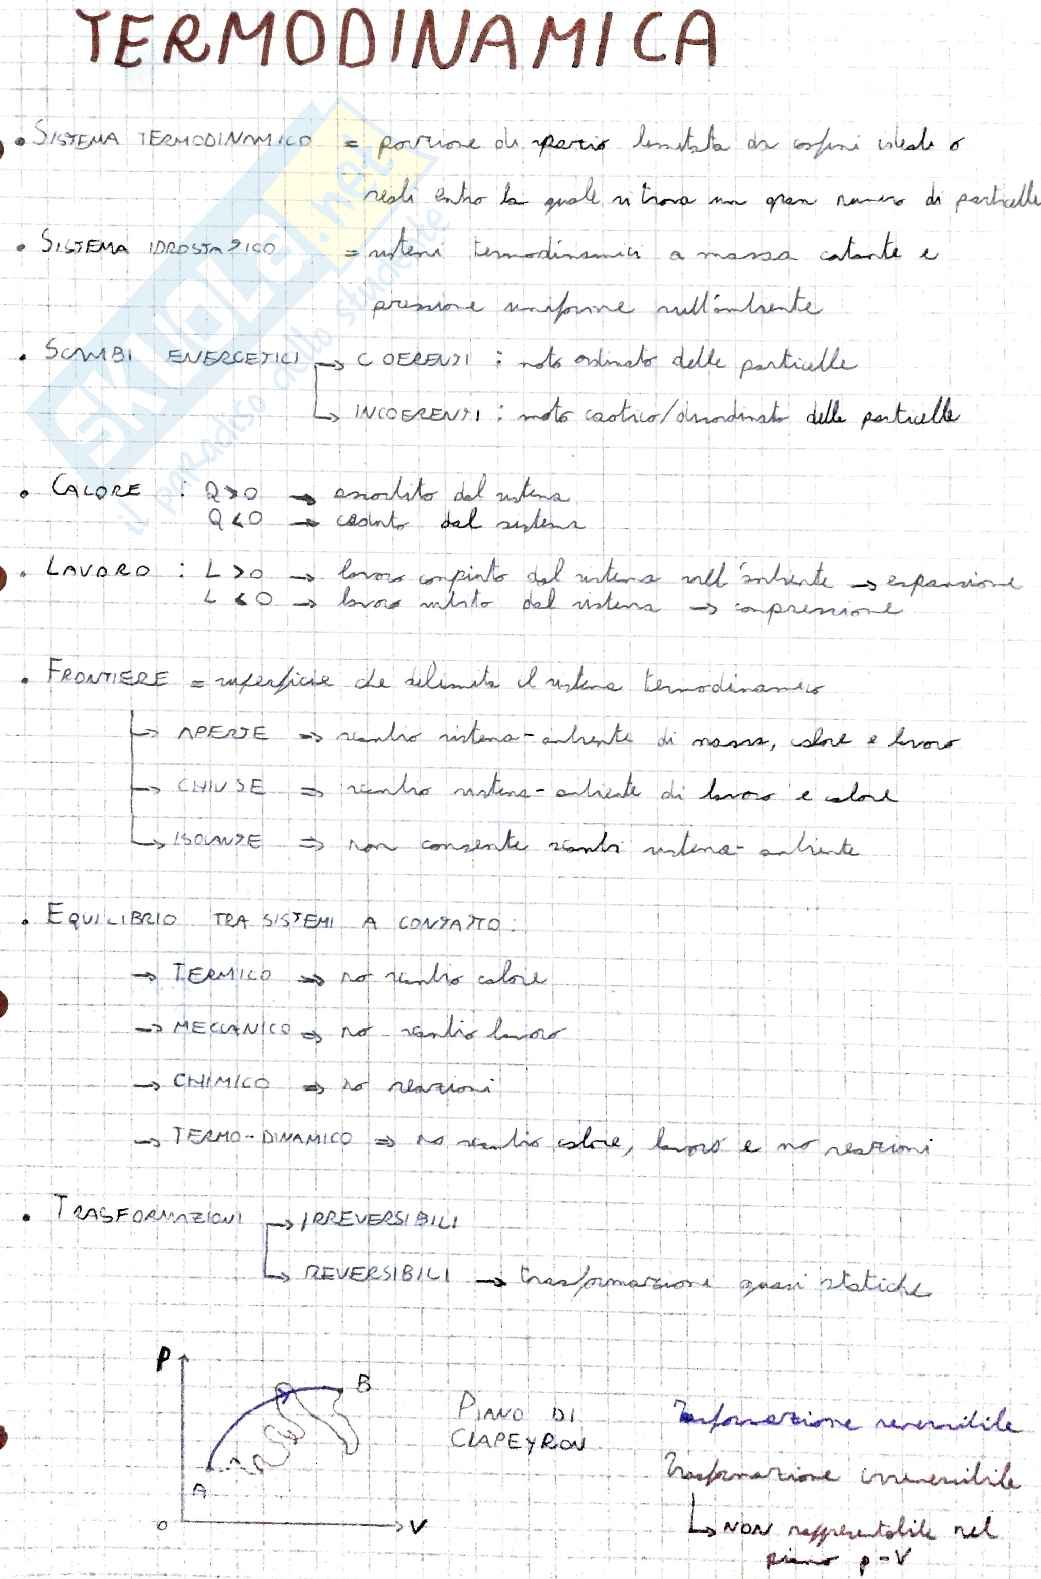 TERMODINAMICA
• SISTEMA TERMODINAMICO = porzione di spazio limitata da confini ideali o
reali entro la quale si trova un gran numero di particelle
• SISTEMA IDROSTATICO = sistemi termodinamici a massa costante e
pressione uniforme sull'ambiente
• SCAMBI ENERGETICI → COERENTI : moto ordinato delle particelle
→ INCOERENTI : moto caotico/disordinato delle particelle
• CALORE : Q>0 → assorbito dal sistema
Q<0 → ceduto dal sistema
• LAVORO : L>0 → lavoro compiuto dal sistema sull'ambiente → espansione
L<0 → lavoro subito dal sistema → compressione
• FRONTIERE = superficie che delimita il sistema termodinamico
→ APERTE ⇒ scambio sistema-ambiente di massa, calore e lavoro
→ CHIUSE ⇒ scambio sistema-ambiente di lavoro e calore
→ ISOLANTE ⇒ non consente scambi sistema-ambiente
• EQUILIBRIO TRA SISTEMI A CONTATTO:
→ TERMICO ⇒ no scambio calore
→ MECCANICO ⇒ no scambio lavoro
→ CHIMICO ⇒ no reazioni
→ TERMO-DINAMICO ⇒ no scambio calore, lavoro e no reazioni
• TRASFORMAZIONI → IRREVERSIBILI
→ REVERSIBILI → trasformazioni quasi statiche
P
B
A
O
V
PIANO DI
CLAPEYRON
Trasformazione reversibile
Trasformazione irreversibile
→ NON rappresentabile nel
piano p-V
SKUOLA.net
il paradiso dello studente